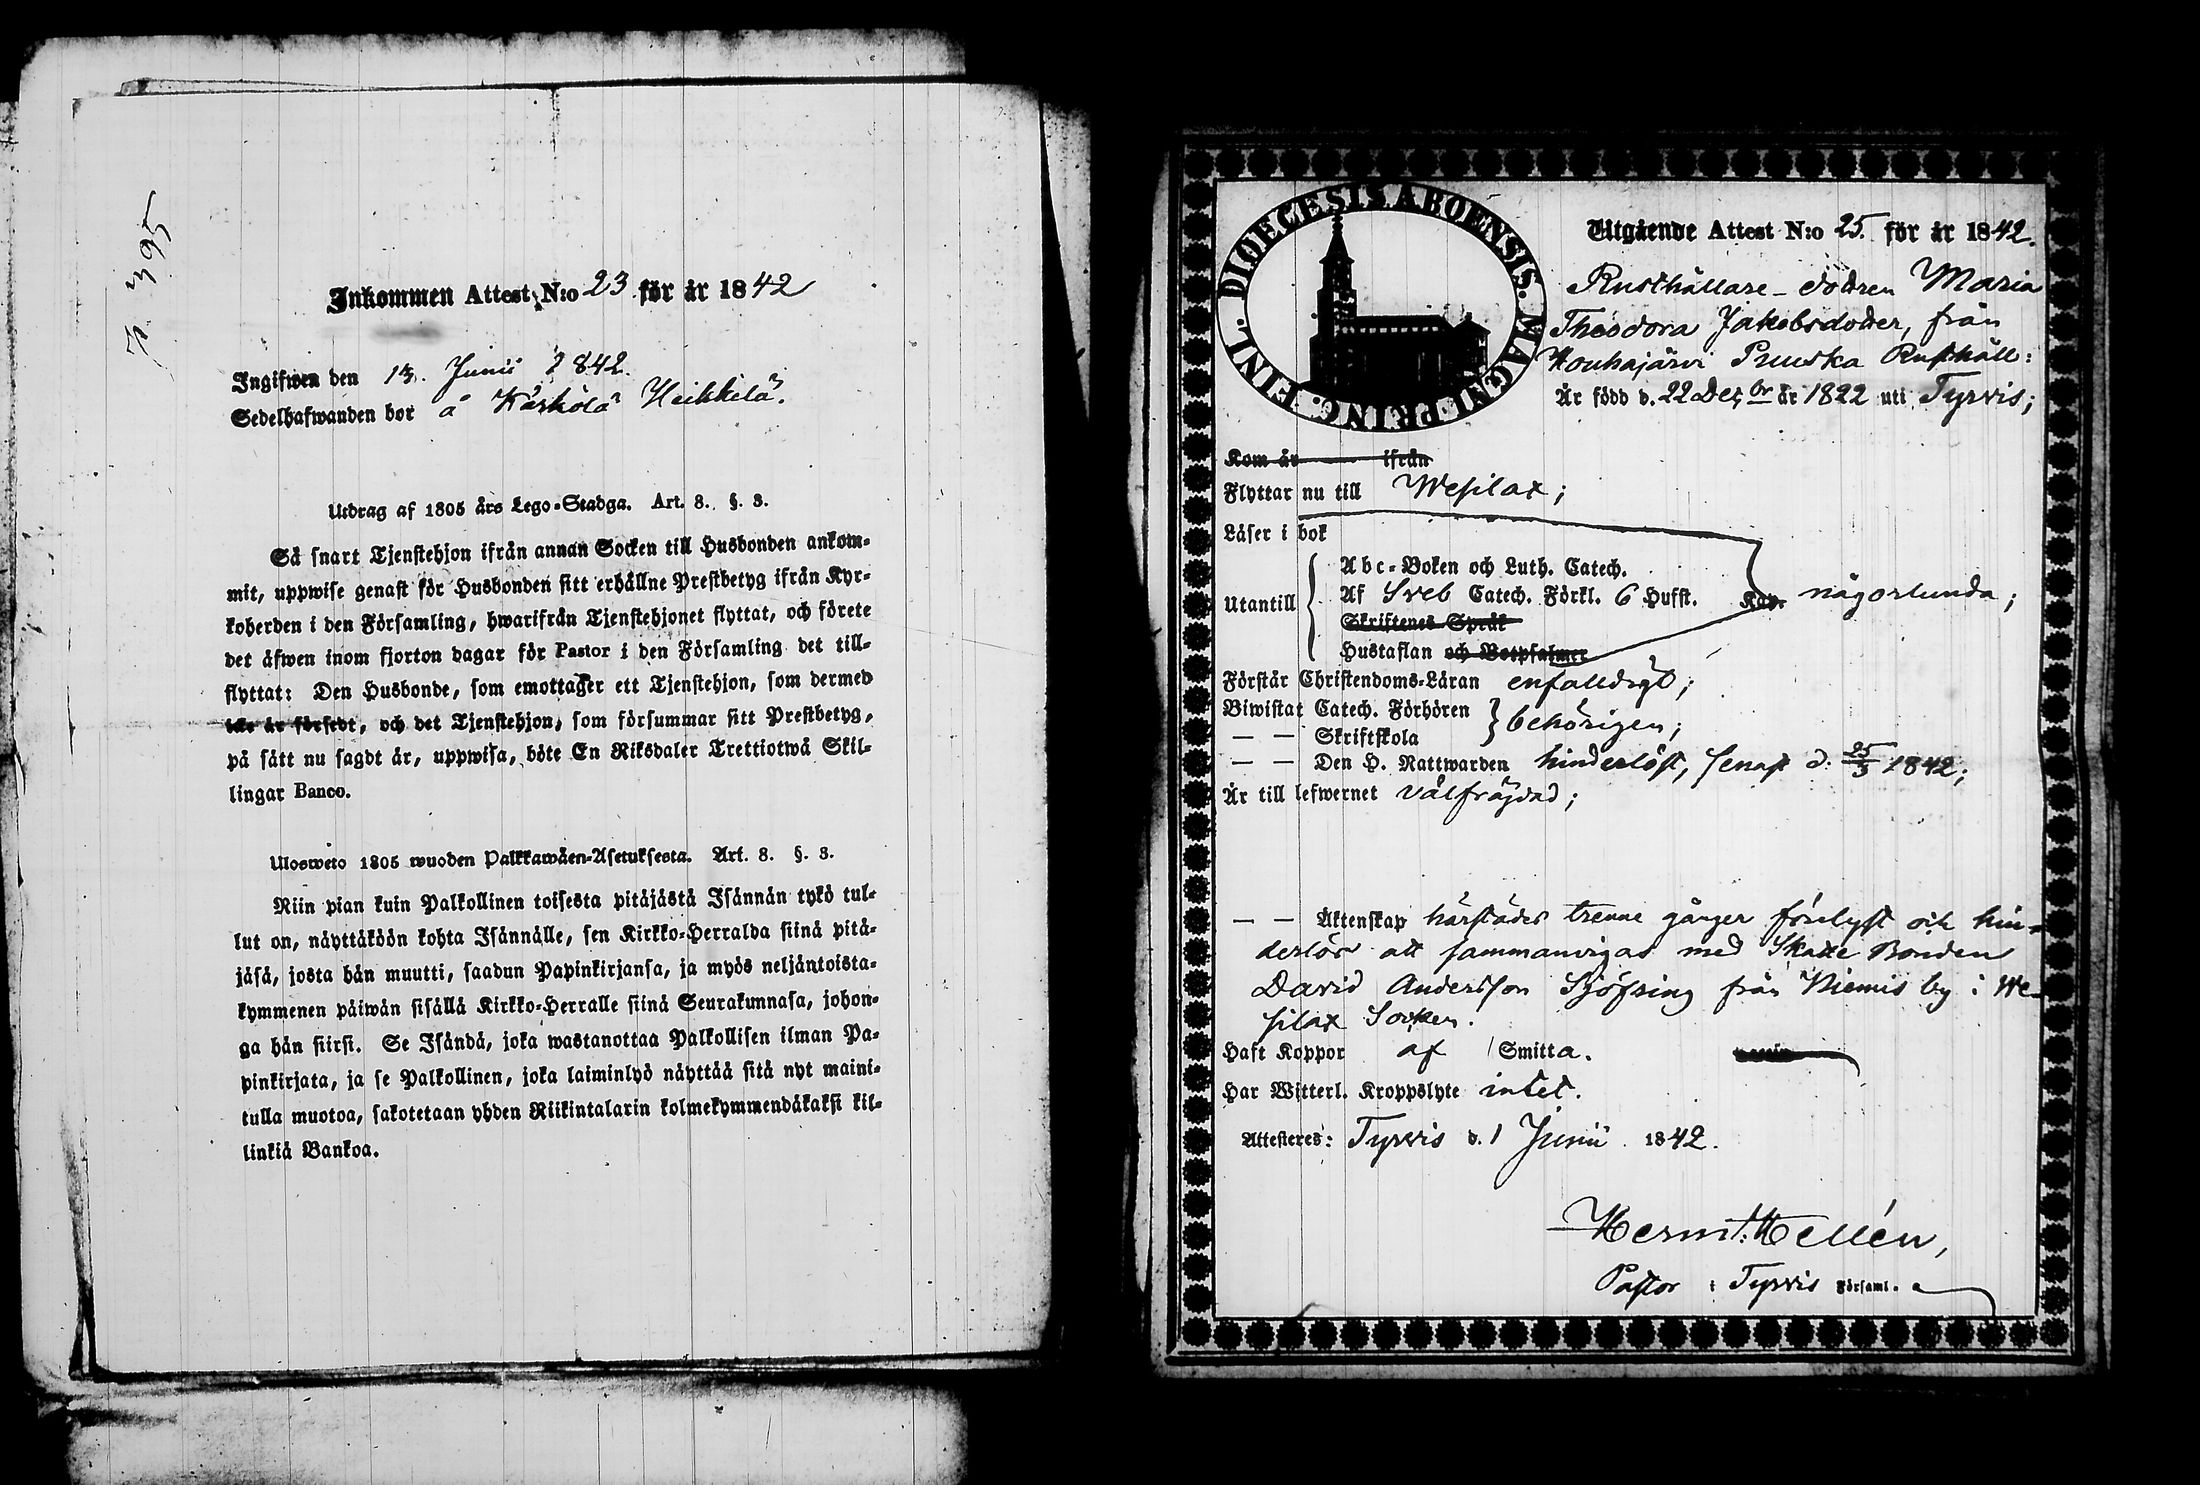 p. 395
Inkommen Attest N:o 23 för år 1842
Ingifwen den 13. Junii 1842.
Sedelhafwanden bor å Kärkölä Heikkilä.
Utdrag af 1805 års Lego-Stadga. Art. 8. §. 3.
Så snart Tjenstehjon ifrån annan Socken till Husbonden ankom-
mit, uppwise genast för Husbonden sitt erhållne Prestbetyg ifrån Kyr-
koherden i den Församling, hwarifrån Tjenstehjonet flyttat, och förete
det äfwen inom fjorton dagar för Pastor i den Församling det till-
flyttat: Den Husbonde, som emottager ett Tjenstehjon, som dermed
icke är försedt, och det Tjenstehjon, som försummar sitt Prestbetyg,
på sätt nu sagdt är, uppwisa, böte En Riksdaler Trettiotwå Skil-
lingar Banco.
Ulosweto 1805 wuoden Palkkawäen-Asetuksesta. Art. 8. §. 3.
Niin pian kuin Palkollinen toisesta pitäjästä Isännän tykö tul-
lut on, näyttäköön kohta Isännälle, sen Kirkko-Herralda siinä pitä-
jäsä, josta hän muutti, saadun Papinkirjansa, ja myös neljäntoista-
kymmenen päiwän sisällä Kirkko-Herralle siinä Seurakunnasa, johon-
ga hän siirsi. Se Isändä, joka wastanottaa Palkollisen ilman Pa-
pinkirjata, ja se Palkollinen, joka laiminlyö näyttää sitä nyt maini-
tulla muotoa, sakotetaan yhden Riikintalarin kolmekymmendäkaksi kil-
linkiä Bankoa.
DIOECESIS ABOENSIS. MAGNI PRINC. FINL.
Utgående Attest N:o 25. för år 1842.
Rusthållare-dottren Maria
Theodora Jakobsdotter, från
Houhajärvi Pruuska Rusthåll:
Är född d. 22 Decbr år 1822 uti Tyrvis;
Kom år ifrån
Flyttar nu till Wesilax;
Läser i bok
Abc-Boken och Luth. Catech.
Utantill Af Sveb Catech. Förkl. 6 Hufst. Kap. någorlunda;
Skriftenes Språk
Hustaflan och Botpsalmer
Förstår Christendoms-Läran enfaldigt;
Biwistat Catech. Förhören
— — Skriftskola behörigen;
— — Den H. Nattwarden hinderlöst, senast d. 25/3 1842;
Är till lefwernet välfrägdad;
— — Äktenskap härstädes trenne gånger förelyst och hin-
derlös att sammanvigas med Skatte Bonden
David Andersson Sjöfring från Niemis by i We-
silax Socken.
Haft Koppor af Smitta.
Har Witterl. Kroppslyte intet.
Attesteres: Tyrvis d. 1 Junii 1842.
Herm: Hellén,
Pastor i Tyrvis Församl.